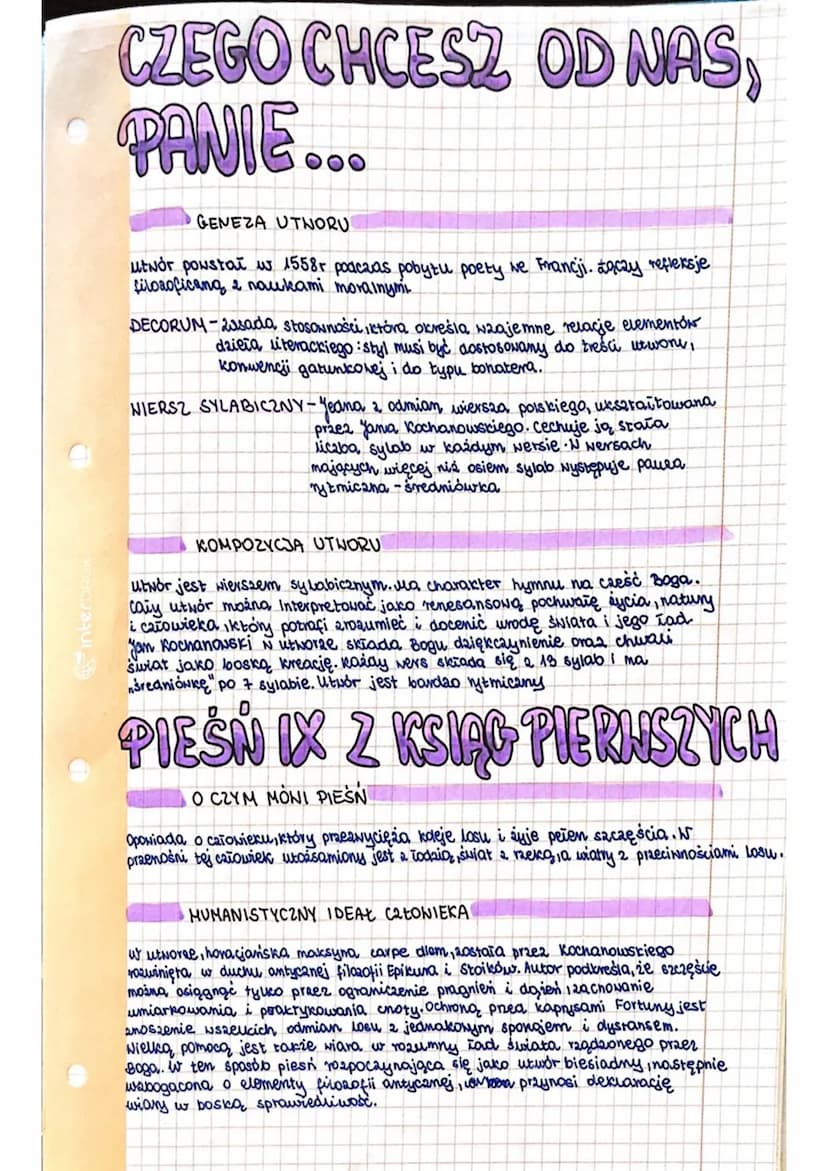 CZEGO CHCESZ OD NAS,
PANIE...
GENEZA UTWORU
utwór powstał w 1558r podczas pobytu poety we Francji. Łączy refleksje
filozoficzną z naukami moralnymi
DECORUM - zasada stosowności, która określa wzajemne relacje elementów
dzieła literackiego: styl musi być dostosowany do treści utworu,
konwencji gatunkowej i do typu bohatera.
WIERSZ SYLABICZNY - Jedna z odmian wiersza polskiego, ukształtowana
przez Jana Kochanowskiego. Cechuje ją stała
liczba sylab w każdym wersie. W wersach
mających więcej niż osiem sylab występuje pauza
rytmiczna - średniówka
KOMPOZYCJA UTWORU
utwór jest wierszem sylabicznym. Ma charakter hymnu na cześć Boga.
Cały utwór można interpretować jako renesansową pochwałę życia, natury
i człowieka, który potrafi zrozumieć i docenić urodę świata i jego ład.
Jan Kochanowski w utworze składa Bogu dziękczynienie oraz chwali
świat jako boską kreację. Każdy wers składa się z 13 sylab i ma
„średniówkę" po 7 sylabie. Utwór jest bardzo rytmiczny
PIEŚŃ IX Z KSIĄG PIERWSZYCH
O CZYM MÓWI PIEŚŃ
Opowiada o człowieku, który przezwycięża koleje losu i żyje pełen szczęścia. W
przenośni tej człowiek utożsamiony jest z łodzią, świat z rzeką, a wiatry z przeciwnościami losu.
HUMANISTYCZNY IDEAŁ CZŁOWIEKA
W utworze, horacjańska maksyma carpe diem, została przez Kochanowskiego
rozwinięta w duchu antycznej filozofii Epikura i Stoików. Autor podkreśla, że szczęście
można osiągnąć tylko przez ograniczenie pragnień i dążeń, zachowanie
umiarkowania i praktykowania cnoty. Ochroną przed kaprysami Fortuny jest
znoszenie wszelkich odmian losu z jednakowym spokojem i dystansem.
Wielką pomocą jest także wiara w rozumny ład świata rządzonego przez
Boga. W ten sposób pieśń rozpoczynająca się jako utwór biesiadny, następnie
wzbogacona o elementy filozofii antycznej, przynosi deklarację
wiary w boską sprawiedliwość.